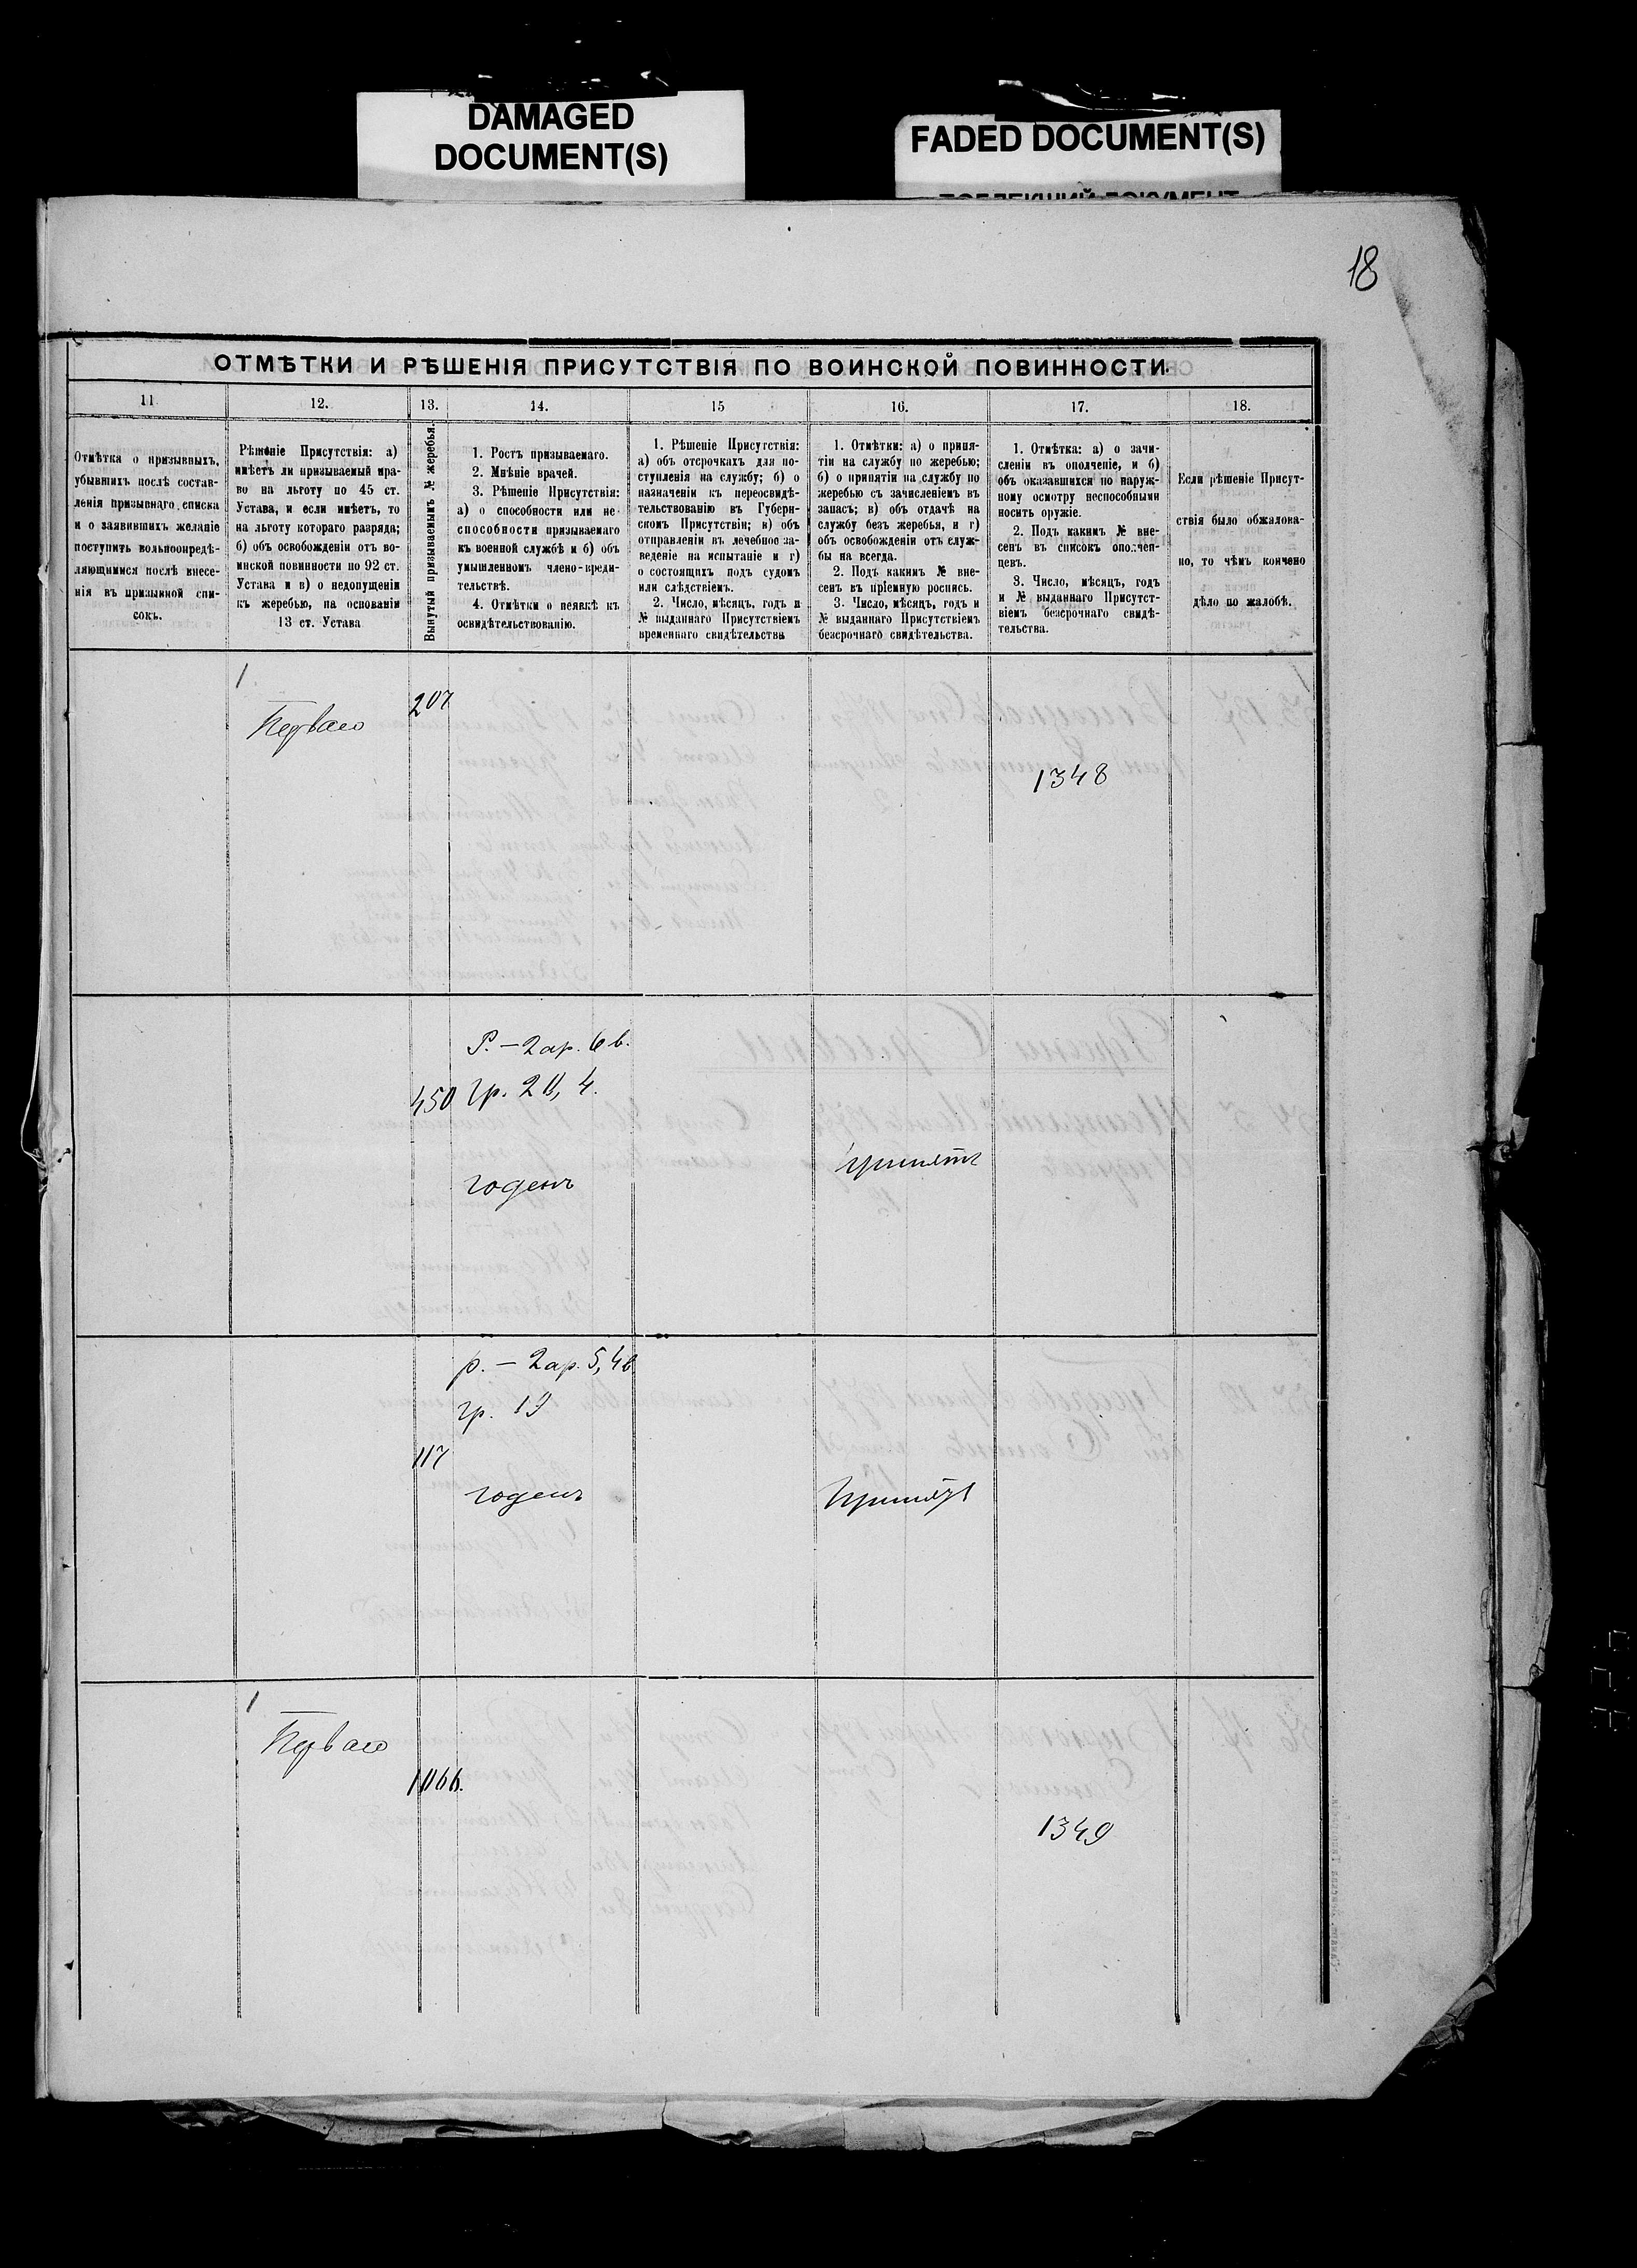 DAMAGED
DOCUMENT(S)
FADED DOCUMENT(S)
18
ОТМѢТКИ И РѢШЕНІЯ ПРИСУТСТВІЯ ПО ВОИНСКОЙ ПОВИННОСТИ.
11
12.
13.
14.
15
16.
17.
18.
Отмѣтка о призывныхъ,
убывшихъ послѣ состав-
ленія призывнаго списка
и о заявившихъ желаніе
поступить вольноопредѣ-
ляющимися послѣ внесе-
нія въ призывной спи-
сокъ.
Рѣшеніе Присутствія: а)
имѣетъ ли призываемый пра-
во на льготу по 45 ст.
Устава, и если имѣетъ, то
на льготу котораго разряда;
б) объ освобожденіи отъ во-
инской повинности по 92 ст.
Устава и в) о недопущеніи
къ жеребью, на основаніи
13 ст. Устава
Вынутый призываемымъ № жеребья.
1. Ростъ призываемаго.
2. Мнѣніе врачей.
3. Рѣшеніе Присутствія:
а) о способности или не-
способности призываемаго
къ военной службѣ и б) объ
умышленномъ члено-вреди-
тельствѣ.
4. Отмѣтки о неявкѣ къ
освидѣтельствованію.
1. Рѣшеніе Присутствія:
а) объ отсрочкахъ для по-
ступленія на службу; б) о
назначеніи къ переосвидѣ-
тельствованію въ Губерн-
скомъ Присутствіи; в) объ
отправленіи въ лечебное за-
веденіе на испытаніе и г)
о состоящихъ подъ судомъ
или слѣдствіемъ.
2. Число, мѣсяцъ, годъ и
№ выданнаго Присутствіемъ
временнаго свидѣтельства
1. Отмѣтки: а) о приня-
тіи на службу по жеребью;
б) о принятіи на службу по
жеребью съ зачисленіемъ въ
запасъ; в) объ отдачѣ на
службу безъ жеребья, и г)
объ освобожденіи отъ служ-
бы на всегда.
2. Подъ какимъ № вне-
сенъ въ пріемную роспись.
3. Число, мѣсяцъ, годъ и
№ выданнаго Присутствіемъ
безсрочнаго свидѣтельства.
1. Отмѣтка: а) о зачи-
сленіи въ ополченіе, и б)
объ оказавшихся по наруж-
ному осмотру неспособными
носить оружіе.
2. Подъ какимъ № вне-
сенъ въ списокъ ополчен-
цевъ.
3. Число, мѣсяцъ, годъ
и № выданнаго Присутст-
віемъ безсрочнаго свидѣ-
тельства.
Если рѣшеніе Присут-
ствія было обжалова-
но, то чѣмъ кончено
дѣло по жалобѣ.
1
Перваго
207
1348
Р. – 2 ар. 6 в.
450 гр. 2 4.
годенъ
принятъ
р. – 2 ар. 5,4 в
гр. 19
117
годенъ
Принятъ
1
Перваго
1066.
1349